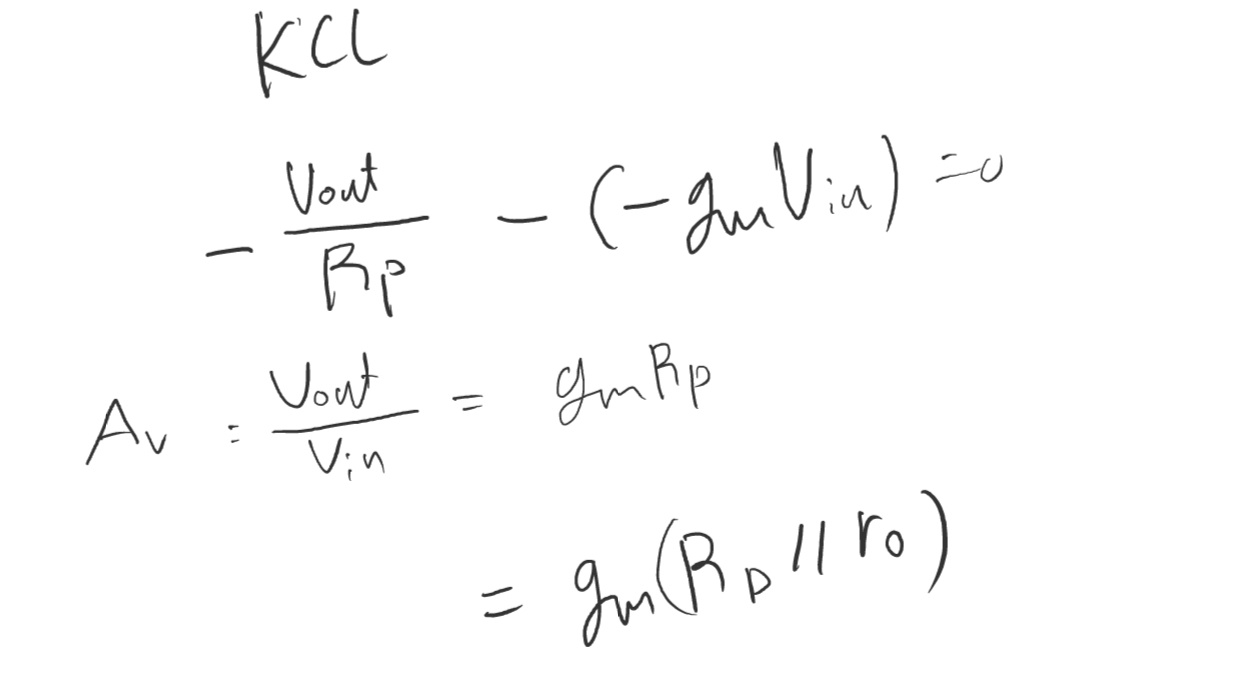 KCL
- Vout/Rp - (-gmVin) = 0
Av = Vout/Vin = gmRp
= gm(RD // ro)